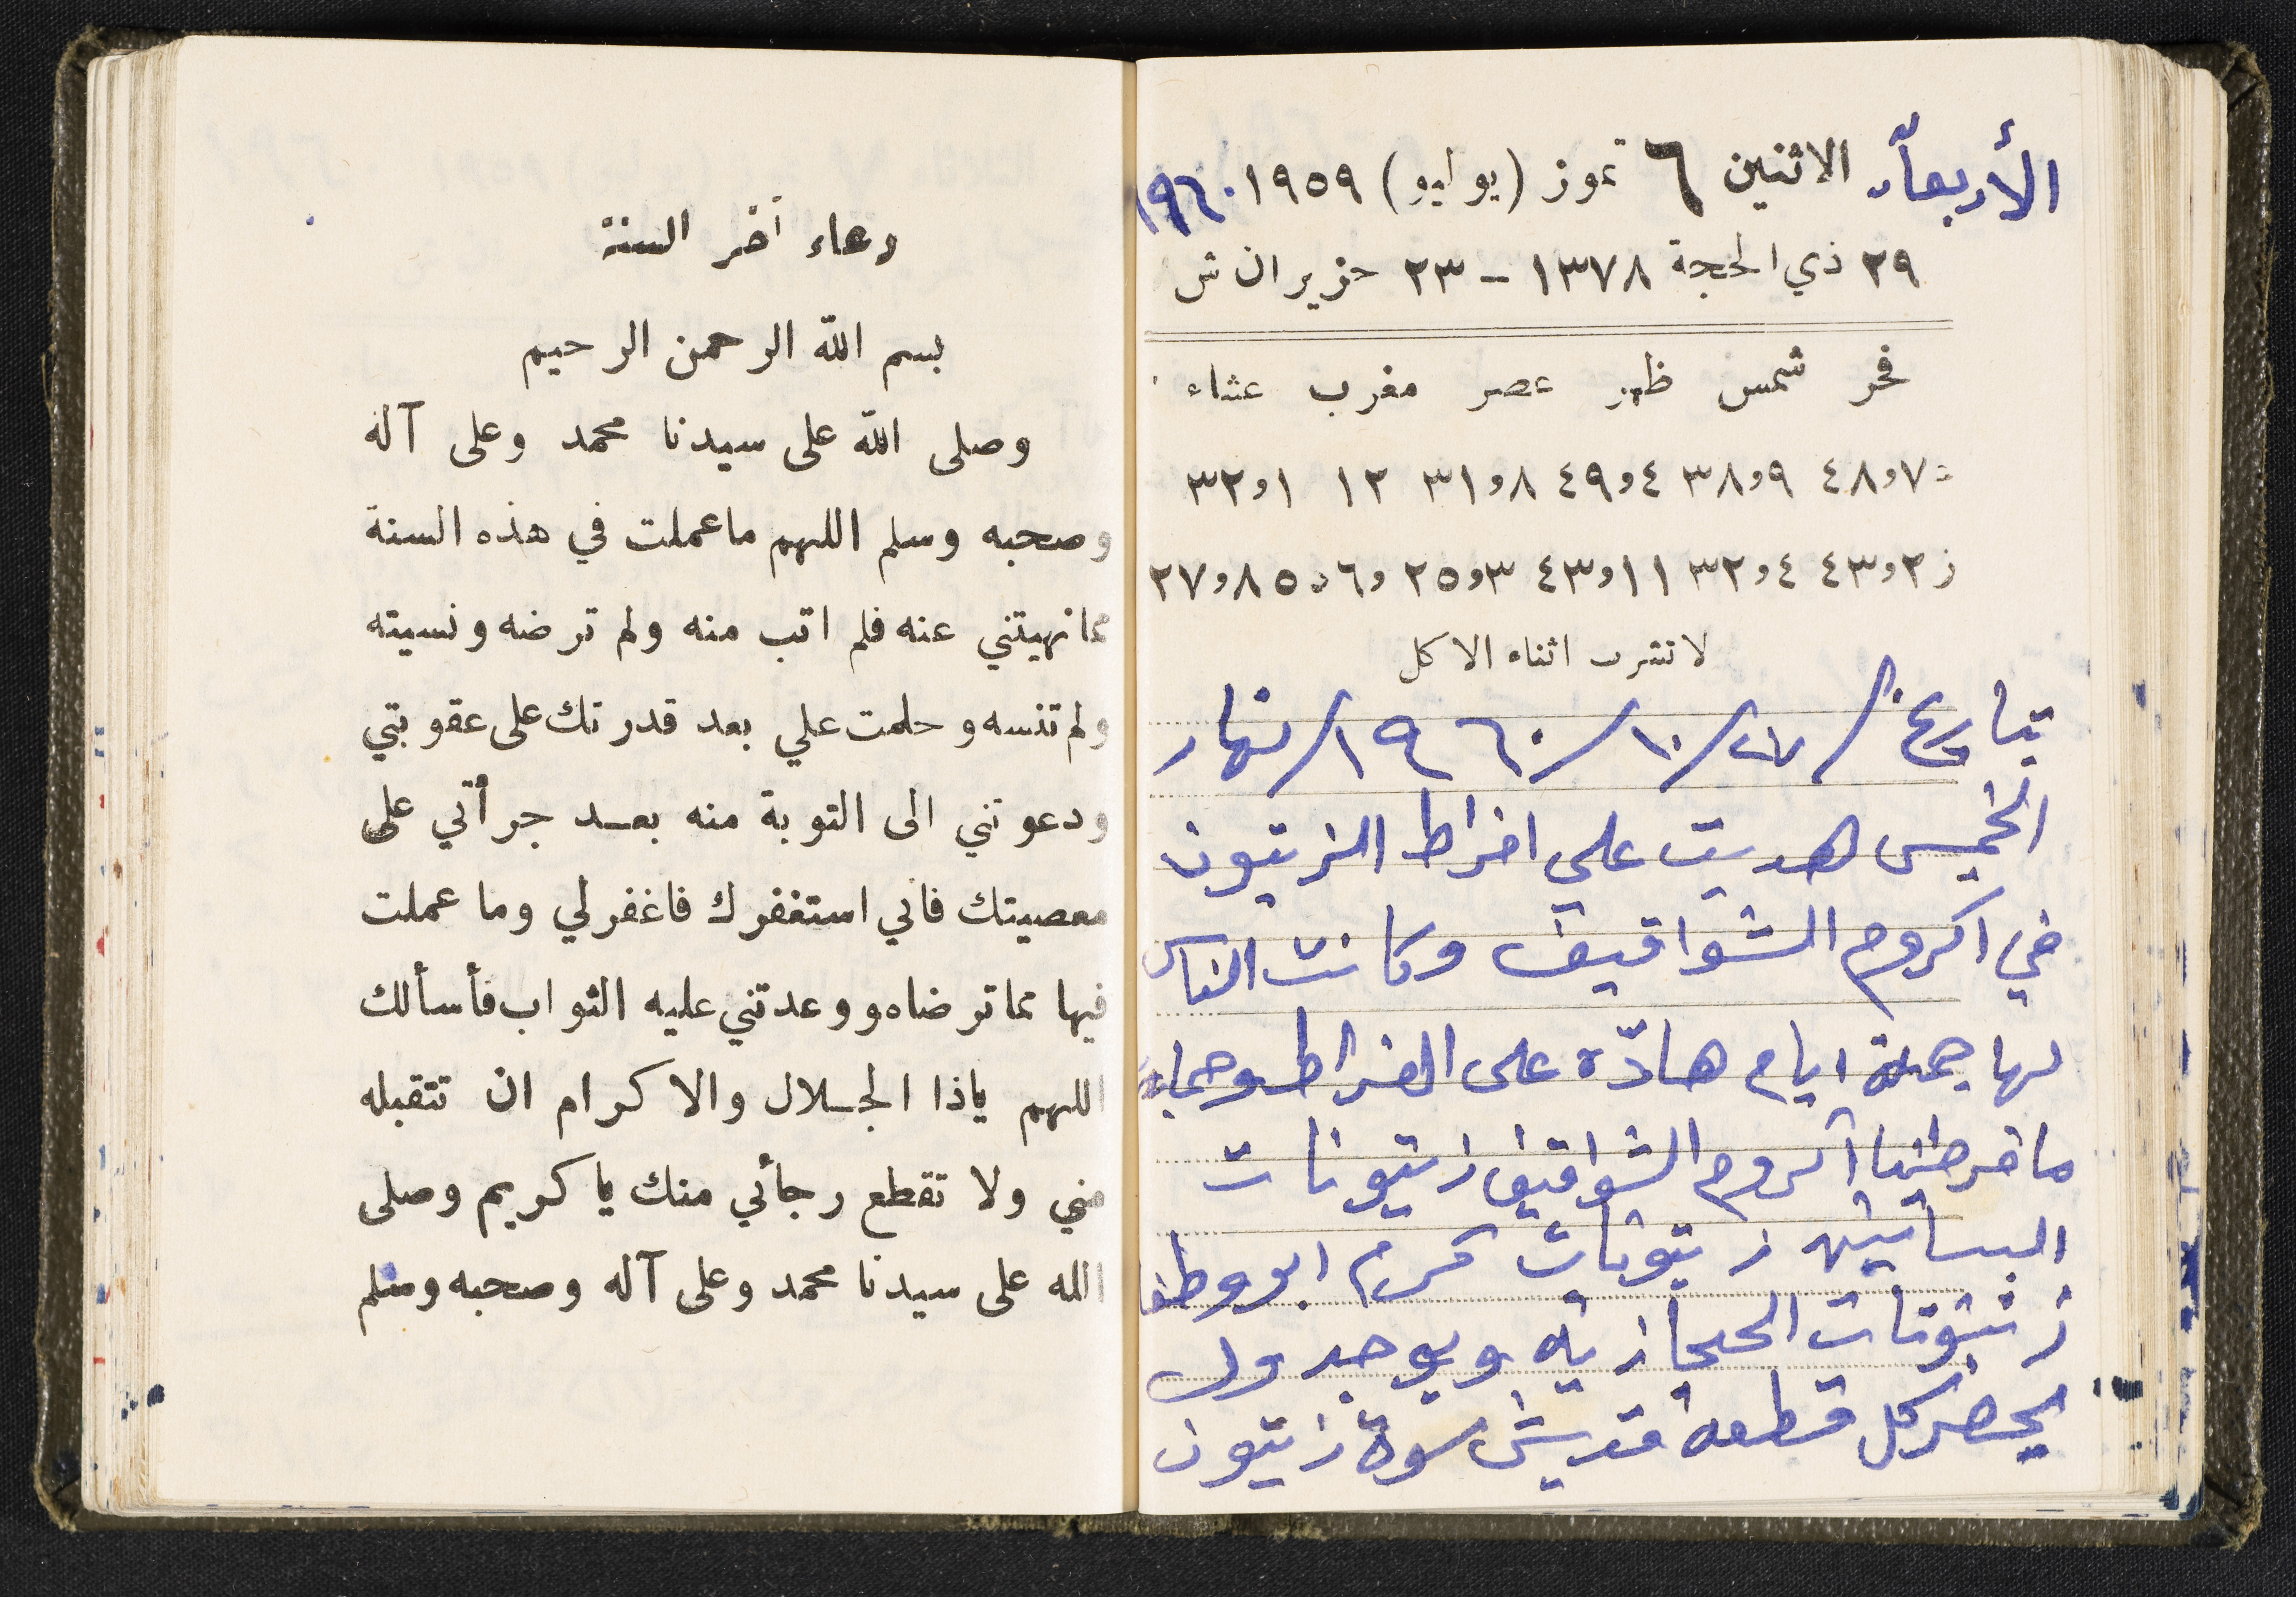 الأربعاء الاثنين ٦ تموز (يوليو) ١٩٥٩ ١٩٦٠
٢٩ ذي الحجة ١٣٧٨ - ٢٣ حزيران ش
فجر شمس ظهر عصر مغرب عشاء
٧و٤٨ ٩و٣٨ ٤و٤٩ ٨و٣١ ١٢ ١و٣٢
ز ٢و٤٣ ٤و٣٢ ١١و٤٣ ٣و٢٥ ٦و٥٥ ٨و٢٧
لا تشرب اثناء الاكل
بتاريخ ٢٧/١٠/١٩٦٠/ نهار
الخميس هديت علي افراط الزيتون
في اكروم الشواقيف وكانت الناس
لها جملة ايام هادّه على الفراط وحياة
ما فرطينا اكروم الشواقيف زيتونات
البساتين زيتونات كرم ابو وطفا
زيتونات الحجازيه ويوجد ول
يحضر كل قطعه قديش سوة زيتون
دعاء آخر السنة
بسم الله الرحمن الرحيم
وصلى الله على سيدنا محمد وعلى آله
وصحبه وسلم اللهم ما عملت في هذه السنة
مما نهيتني عنه فلم اتب منه ولم ترضه ونسيته
ولم تنسه وحلمت علي بعد قدرتك على عقوبتي
ودعوتني الى التوبة منه بعد جرأتي على
معصيتك فاني استغفرك فاغفر لي وما عملت
فيها مما ترضاه ووعدتني عليه الثواب فأسألك
اللهم ياذا الجلال والاكرام ان تتقبله
مني ولا تقطع رجأئي منك يا كريم وصلى
الله على سيدنا محمد وعلى آله وصحبه وسلم